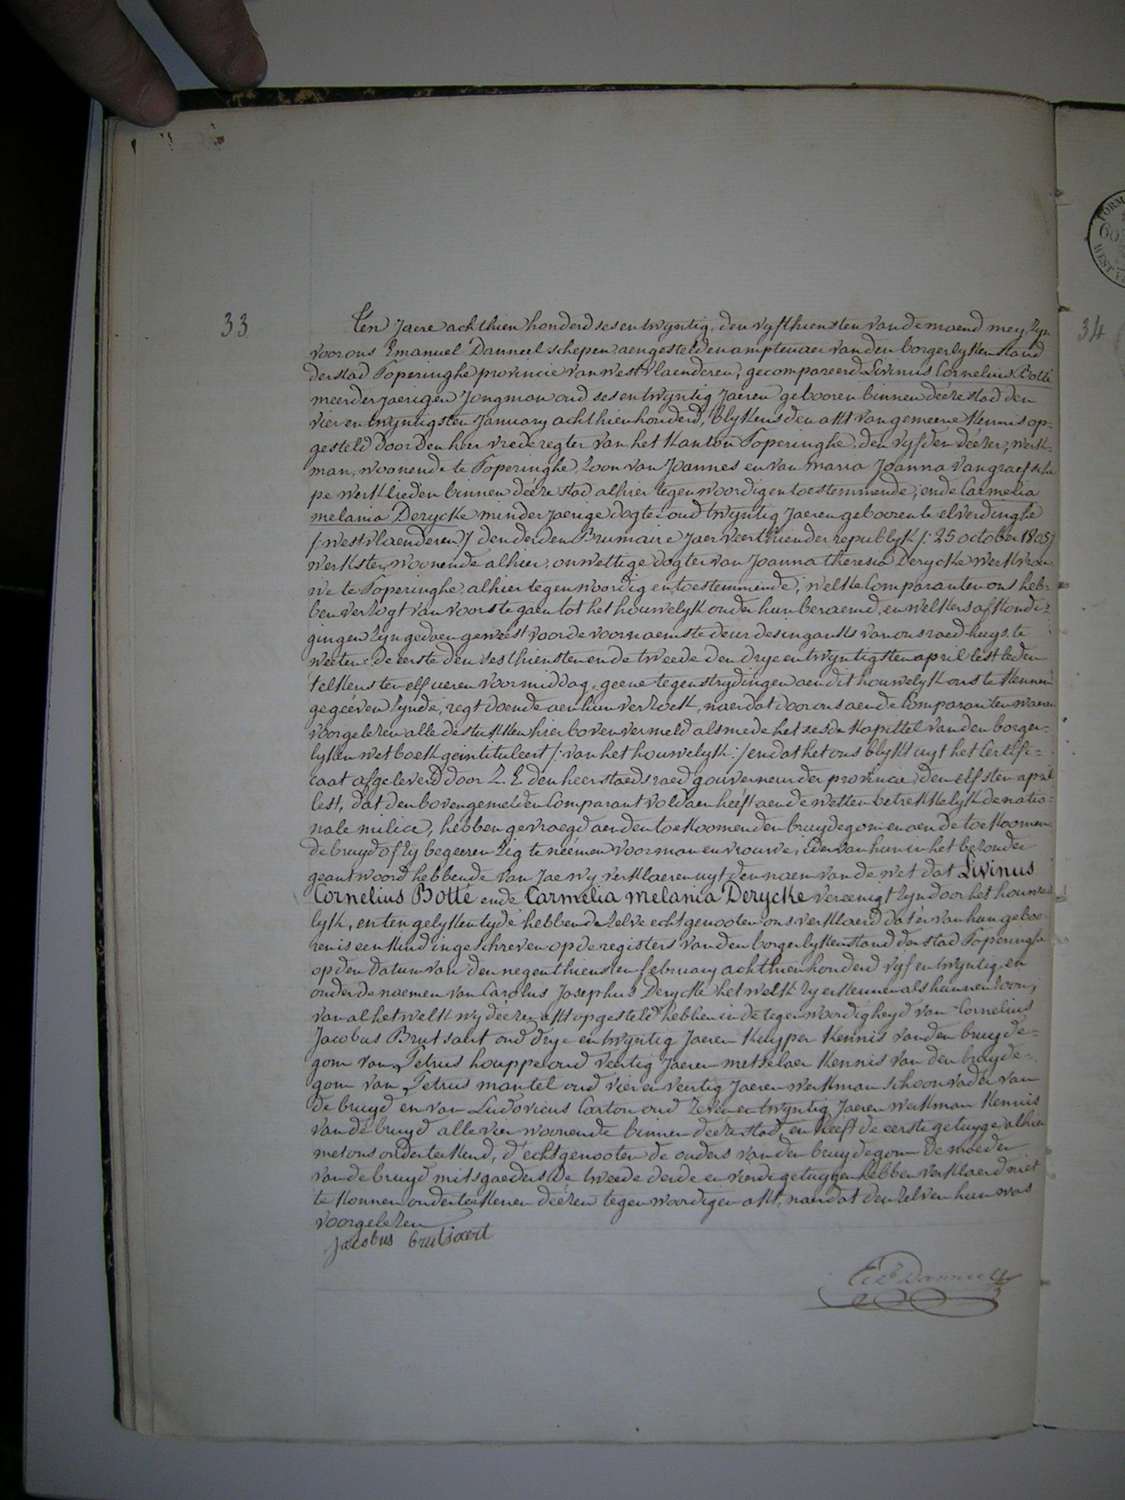 33
Ten Jaere achthien honderd ses en twyntig, den vyfthiensten van de maend mey, zyn
voor ons Emanuel Danneel schepen aengestelden amptenaer van den borgerlyken stand
der stad Poperinghe provincie van westvlaenderen, gecompareerd Livinus Cornelius Botte
meerderjaerigen Jongman oud ses en twyntig Jaeren gebooren binnen deéze stad den
vier en twyntigsten January achthien honderd, blykens den akt van gemeene kennis op-
gesteld door den heer vrede regter van het kanton Poperinghe den vyfden déézer, werk-
man, woonende te Poperinghe, zoon van Joannes en van maria Joanna vangraefsche-
pe werklieden binnen deéze stad alhier tegenwoordig en toestemmende, ende Carmelia
melania Derycke minderjaerige dogter oud twyntig Jaeren gebooren te elverdinghe
/: westvlaenderen :/ den derden Brumaire Jaer veerthien der republyk /: 25 october 1805 :/
werkster, woonende alhier, onwettige dogter van Joanna theresia Derycke werkvrou-
we te Poperinghe alhier tegenwoordig en toestemmende, welke Comparanten ons heb-
ben verzogt van voorts te gaen tot het houwelyk onder hun beraemd, en welkers afkondi-
gingen zyn gedaen geweést voor de voornaemste deur des ingankks van ons raedhuys, te
weeten: de eerste den sesthiensten ende tweede den drye en twyntigsten april lestleden
telkens ten elf ueren voormiddag, geene tegenstrydingen aen dit houwelyk ons te kennen
gegeéven zynde, regt doende aen hun verzoek, naerdat door ons aende Comparanten waren
voorgelezen alle de stukken hier boven vermeld alsmede het sesde kapittel van den borger-
lyken wetboek geintituleert /: van het houwelyk :/ en dat het ons blykt uyt het Certifi-
caat afgeleverd door Z. E. den heer staedsraed gouverneur der provincie den elfsten april
lest, dat den bovengemelden Comparant voldaen heéft aen de wetten betrekkelyk de natio-
nale milicie, hebben gevraegd aen den toekoomenden bruydegom en aen de toekoomen-
de bruyd of zy begeeren zig te neémen voor man en vrouwe, ider van hun in het bezonder
geantwoord hebbende van Jae wy verklaeren uyt den naem van de wet dat Livinus
Cornelius Botté ende Carmelia melania Derycke vereenigt zyn door het houwe-
lyk, en ten gelyken tyde hebben de zelve echtgenooten ons verklaerd dat er van hun geboo-
ren is een kind ingeschreven op de registers van den borgerlyken stand der stad Poperinghe
op den datum van den negenthiensten february achthien honderd vyf en twyntig en
onder de naemen van Carolus Josephus Derycke het welk zy erkennen als hunnen zoon;
van al het welk wy deézen akt opgesteld hebben in de tegenwoordigheyd van Cornelius
Jacobus Brutsaert oud drye en twyntig Jaeren kuyper kennis van den bruyde-
gom van Petrus houppe oud veertig Jaeren metselaer kennis van den bruyde-
gom van Petrus mantel oud vier en veertig Jaeren werkman schoonvader van
de bruyd en van Ludovicus Carton oud zeven en twyntig Jaeren werkman kennis
van de bruyd alle vier woonende binnen deéze stad, en heéft de eerste getuyge alhier
met ons onderteekend, d'echtgenooten de ouders van den bruydegom de moeder
van de bruyd mitsgaeders de tweede derde en vierde getuygen hebben verklaerd niet
te konnen onderteekenen deézen tegenwoordigen akt, naer dat den zelven hun was
voorgelezen
Jacobus brutsaert
Danneel
34